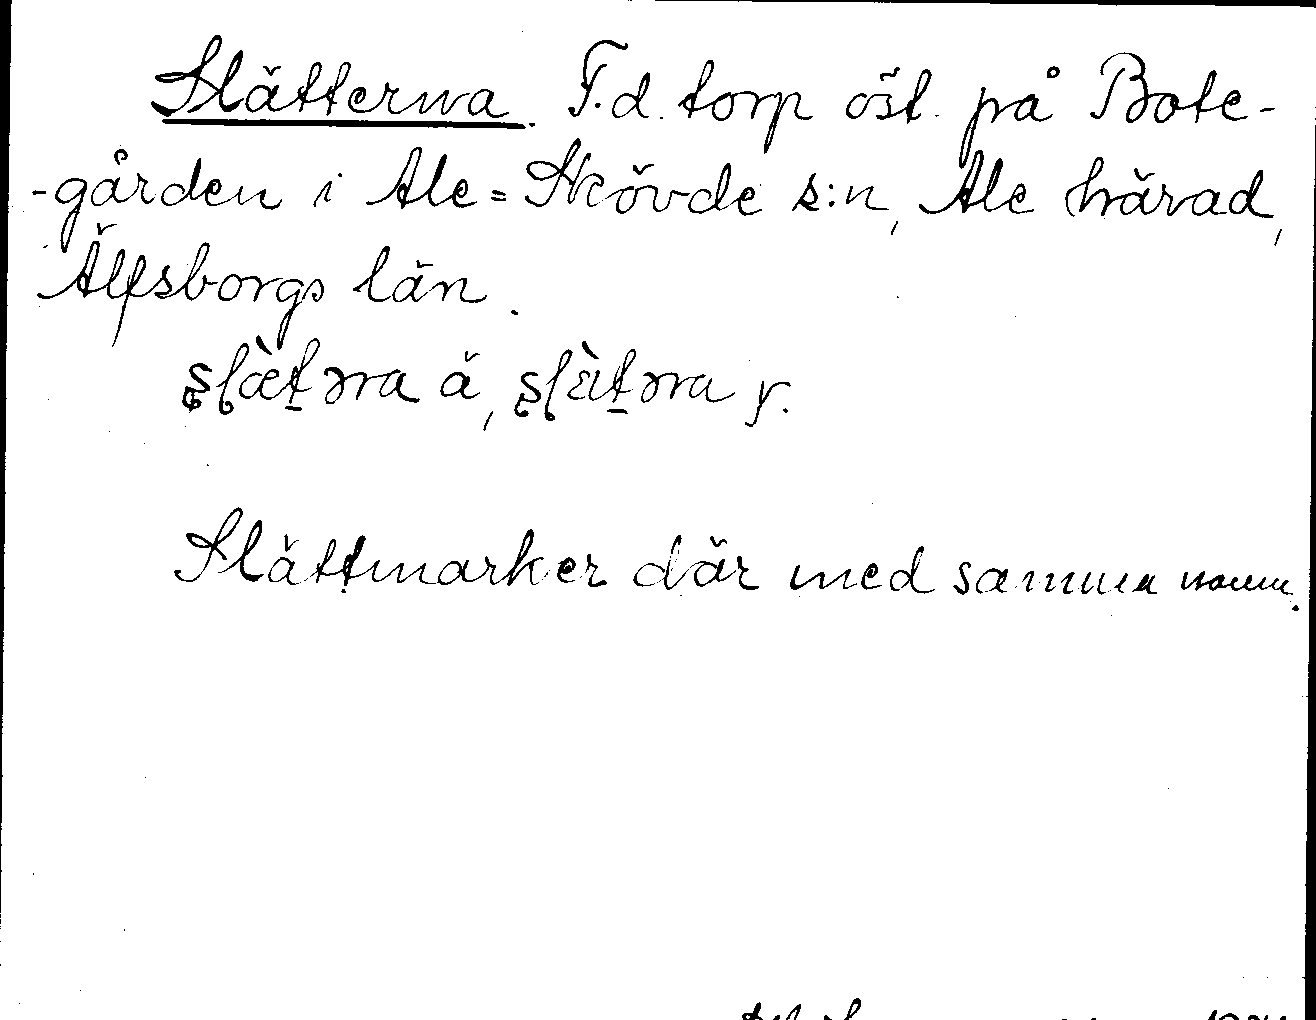 Slätterna. F.d. torp öst. på Bote-
-gården i Ale=Skövde s:n, Ale härad,
Älfsborgs län.
ʂɭæ̀tərna ä, ʂɭɛ̀tərna y.
Slättmarker där med samma namn.